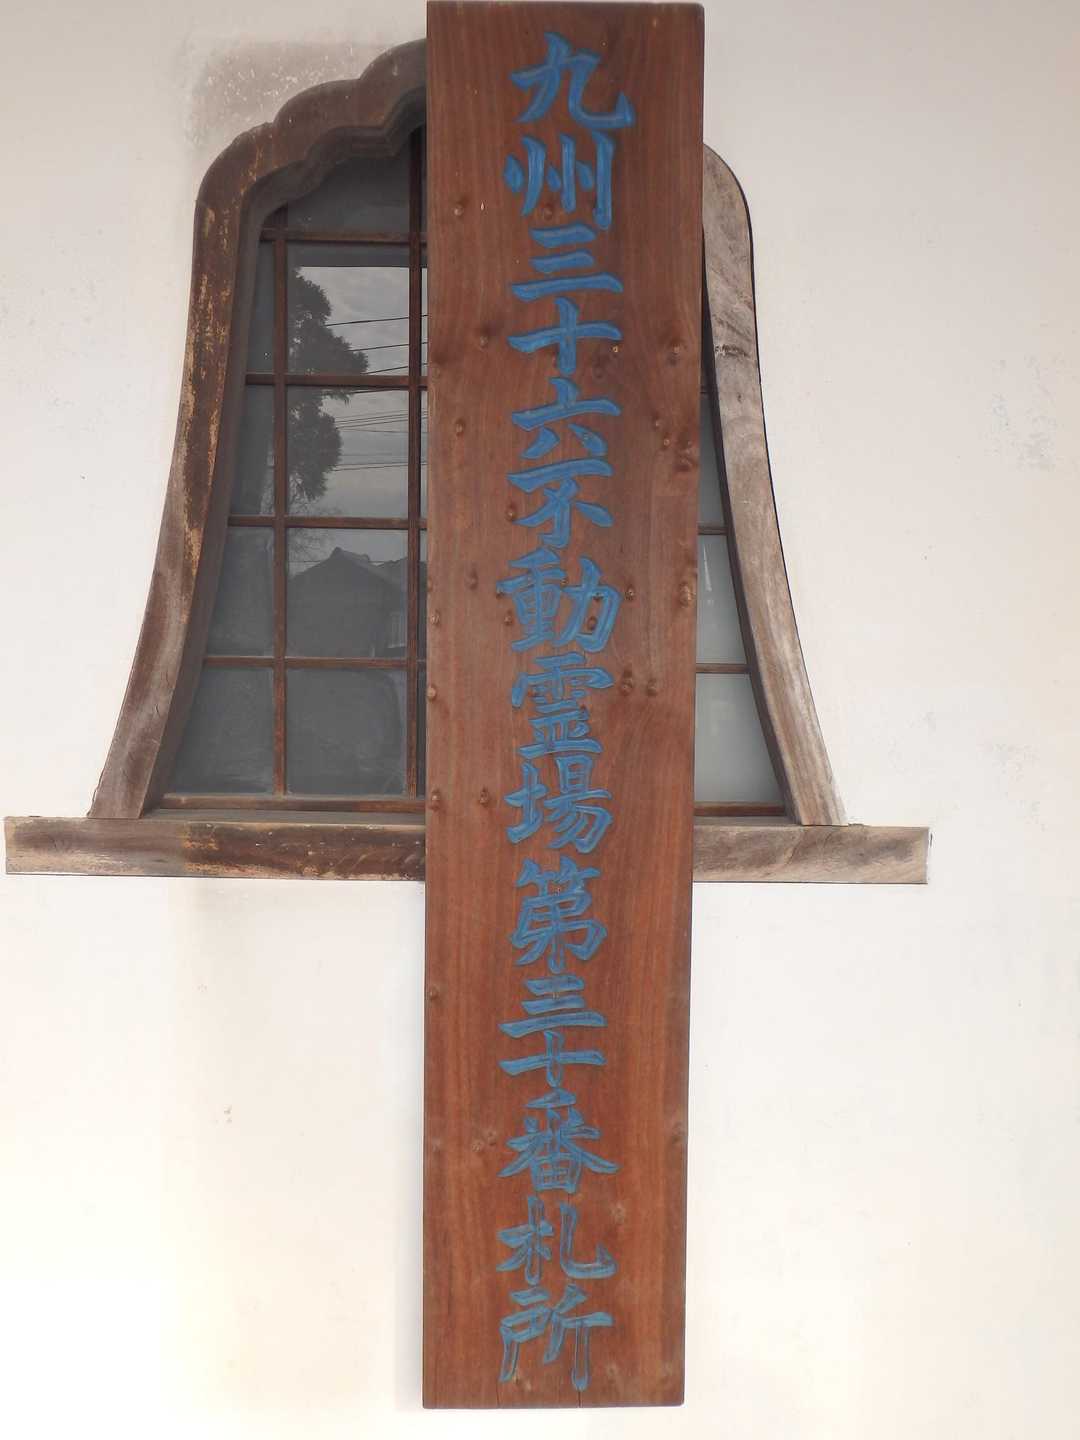 九州三十六不動霊場第三十番札所